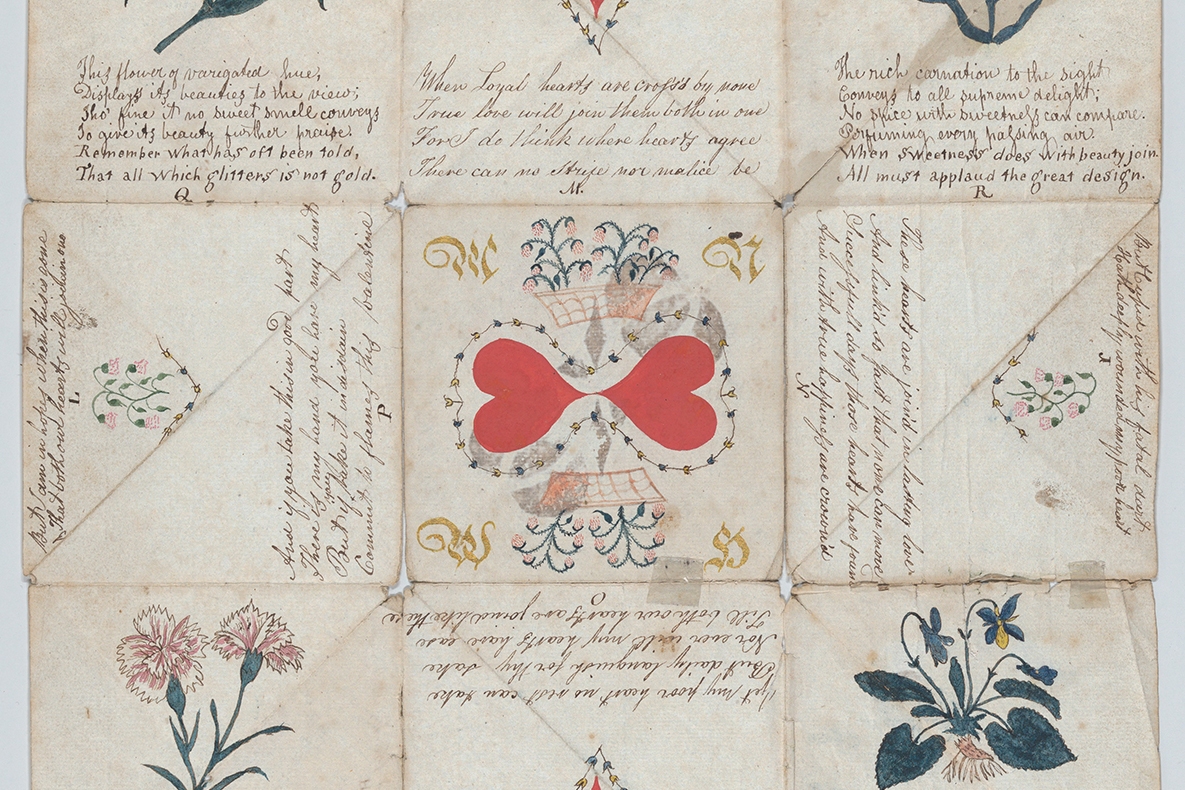 This flower of varigated hue,
Displays its beauties to the view;
Tho' fine it no sweet smell conveys
To give its beauty further praise.
Remember what has oft been told,
That all which glitters is not gold.
Q
When Loyal hearts are cross's by none
True love will join them both in one
For I do think where hearts agree
There can no Strife nor malice be
M.
The rich carnation to the sight,
Conveys to all supreme delight;
No spice with sweetness can compare.
Perfuming every passing air.
When sweetness does with beauty join.
All must applaud the great design.
R
But I am in when this is gone
That both our hearts will join in one
L
And if you take this in good part
There is my hand youse have my heart
But if you take it in disdain
Commit to flames this valentine
P
M
N
W
H
These hearts are join'd in lasting love
And link'd so fast that none can move
Successfull those hearts have found
And with true happiness are crown'd
N
But Cupid with his fatal dart
Hath deeply wounded my poor heart
J
Yet my poor heart no rest can take
But daily languish for thy sake
Nor ever will my hearts have ease
Till both our hearts are joined like these
O